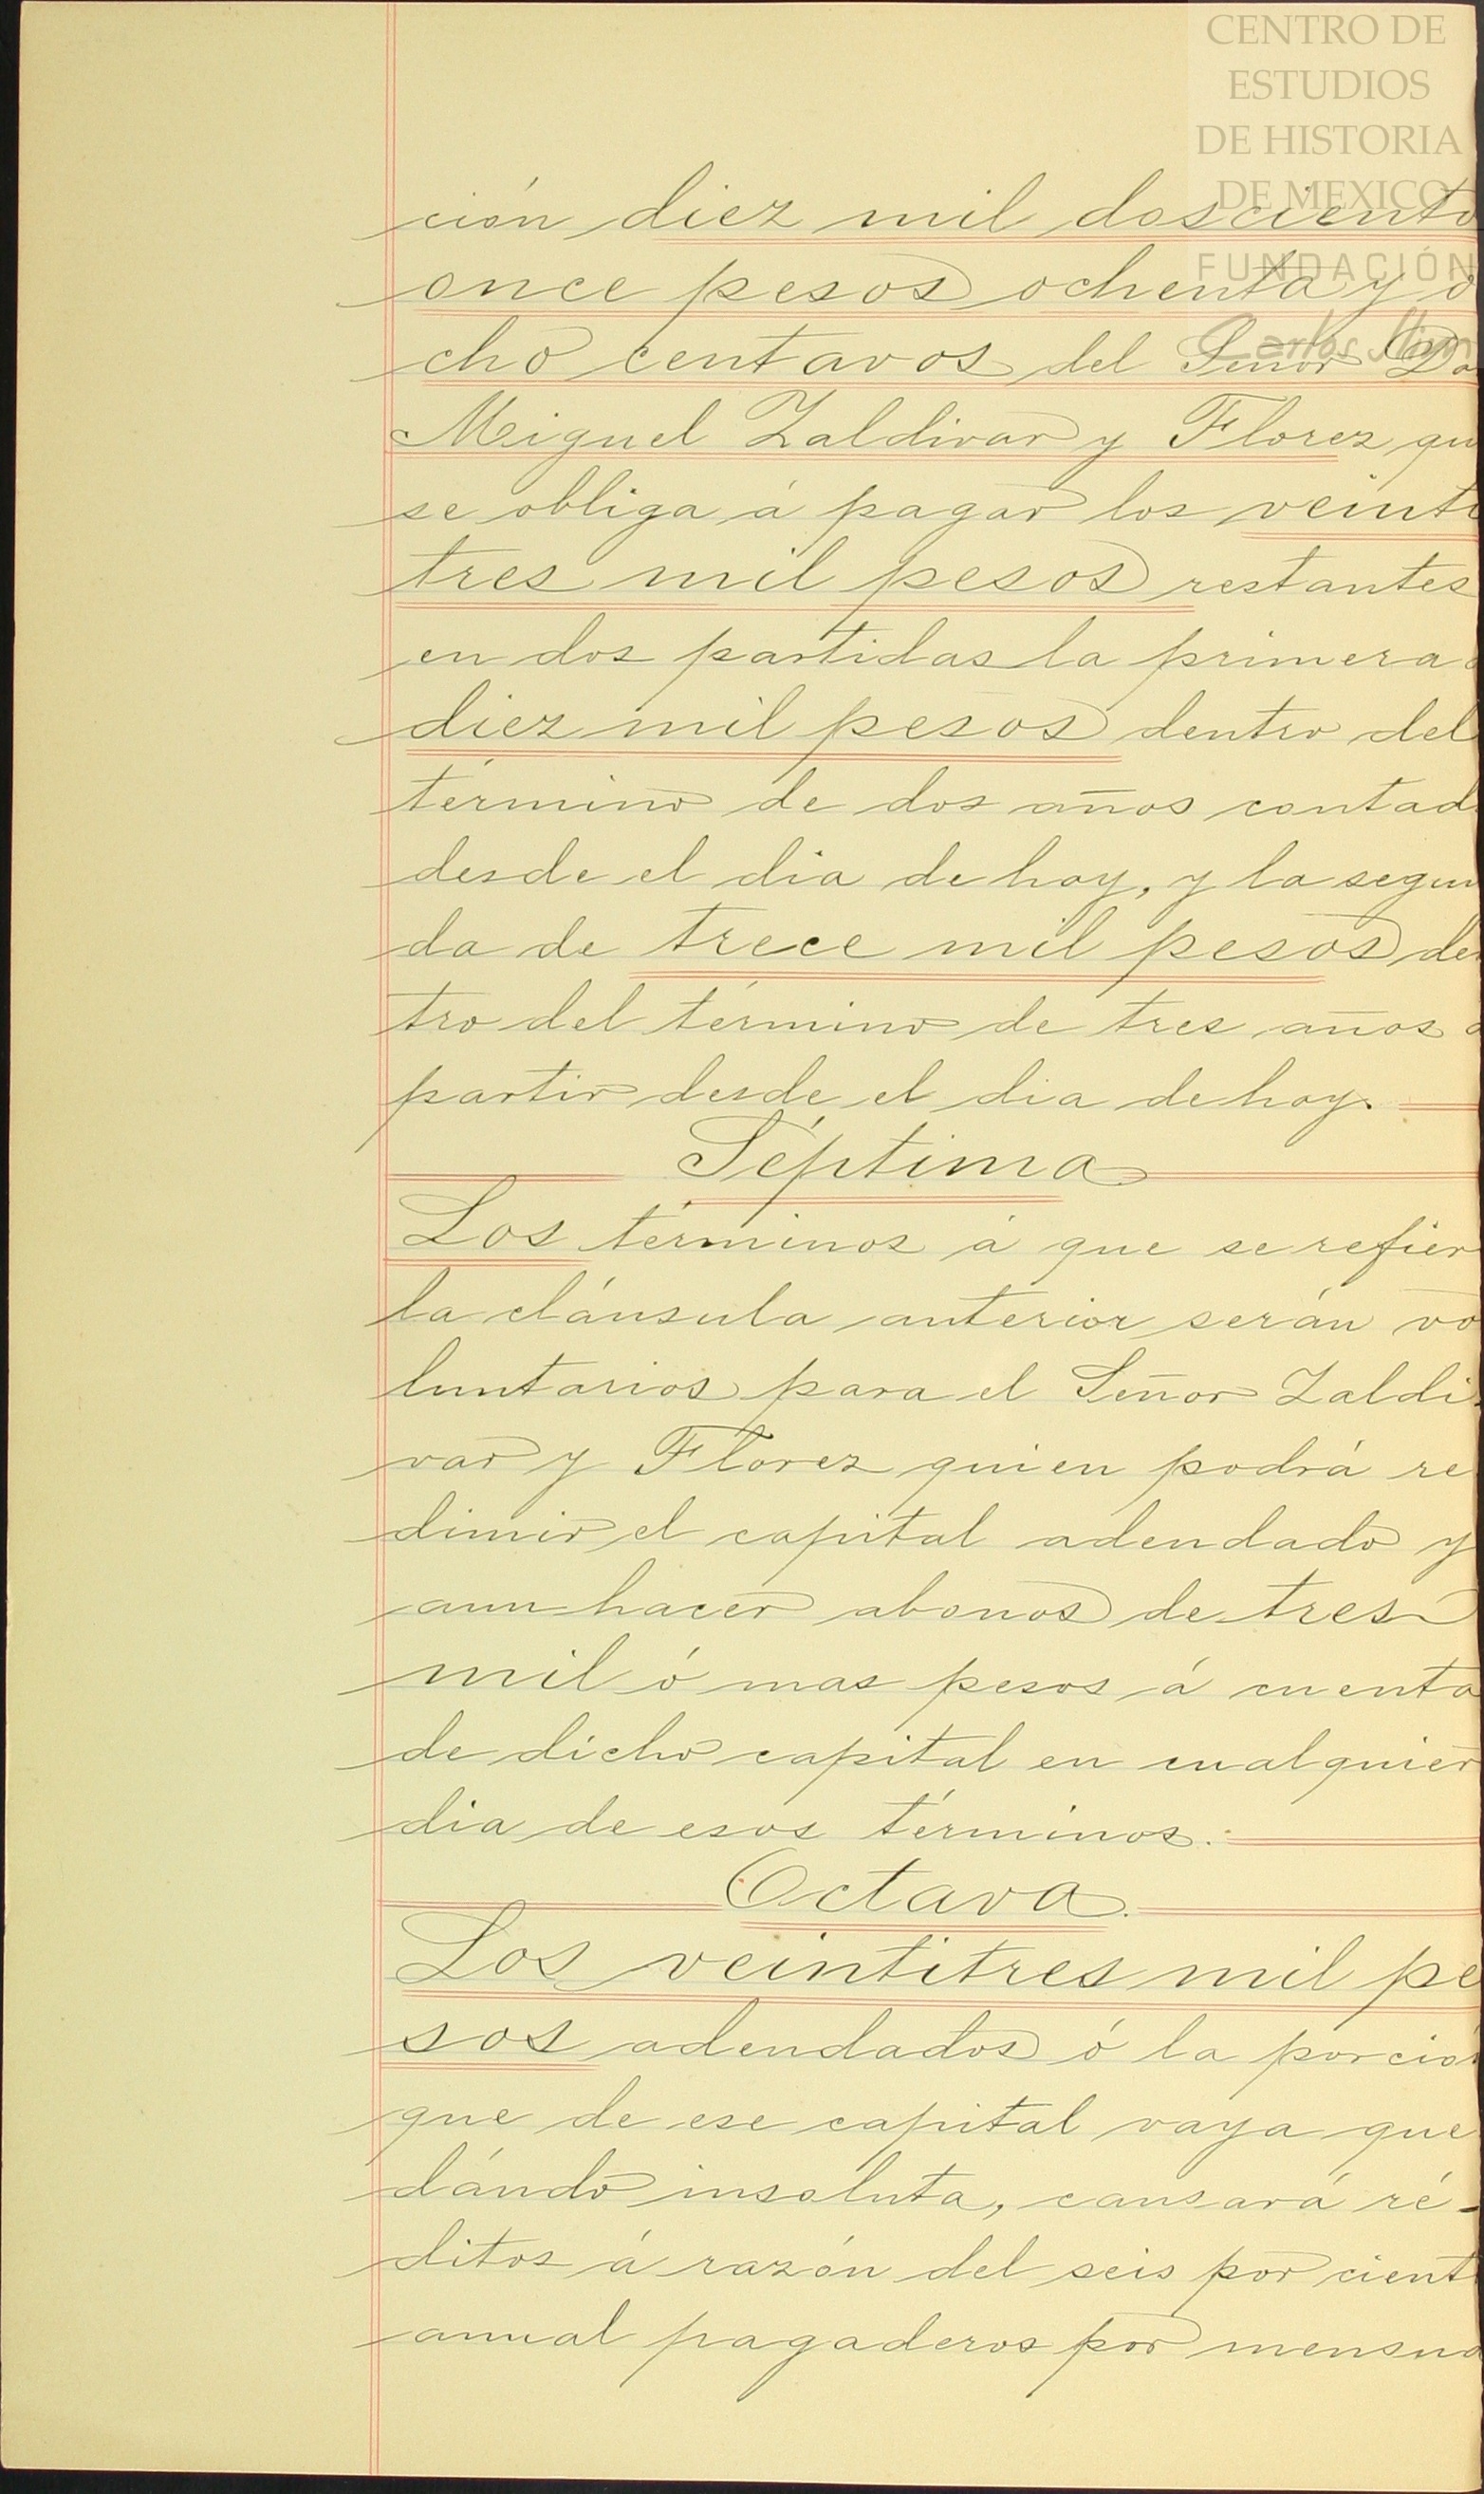 CENTRO DE
ESTUDIOS
DE HISTORIA
DE MEXICO
FUNDACIÓN
Carlos Slim
ción diez mil dosciento
once pesos ochenta y o
cho centavos del Señor Do
Miguel Zaldivar y Florez qu
se obliga á pagar los veinti
tres mil pesos restantes
en dos partidas la primera
diez mil pesos dentro del
término de dos años contad
desde el dia de hoy, y la segun
da de trece mil pesos de
tro del término de tres años
partir desde el dia de hoy.
Séptima
Los términos á que se refier
la cláusula anterior serán vo
luntarios para el Señor Zaldi
var y Florez quien podrá re
dimir el capital adeudado y
aun hacer abonos de tres
mil ó mas pesos á cuenta
de dicho capital en cualquier
dia de esos términos.
Octava.
Los veintitres mil pe
sos adeudados ó la porció
que de ese capital vaya que
dándo insoluta, causará ré-
ditos á razón del seis por cient
anual pagaderos por mensua